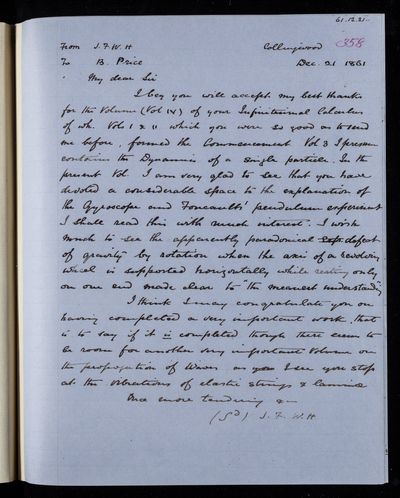 61.12.21.
358
From J. F. W. H Collingwood
To B. Price Dec. 21 1861
My dear Sir
I beg you will accept my best thanks
for the Volume (Vol IV) of your Infinitesimal Calculus
of wh. Vols 1 & 11 which you were so good as to send
me before, formed the Commencement Vol 3 I presume
contains the Dynamics of a single particle. In the
present Vol. I am very glad to see that you have
devoted a considerable space to the explanation of
the Gyroscope and Foucaults' pendulum experiment
I shall read this with much interest. I wish
much to see the apparently paradoxical defeat
of gravity by rotation when the axis of a revolving
wheel is supported horizontally while resting only
on one end made clear to "the meanest understanding
I think I may congratulate you on
having completed a very important work, that
is to say if it is completed though there seems to
be room for another very important Volume on
the propagation of Waves as I see you stop
at the vibrations of elastic strings & laminæ
Once more tendering &c
(Sd) J. F. W. H